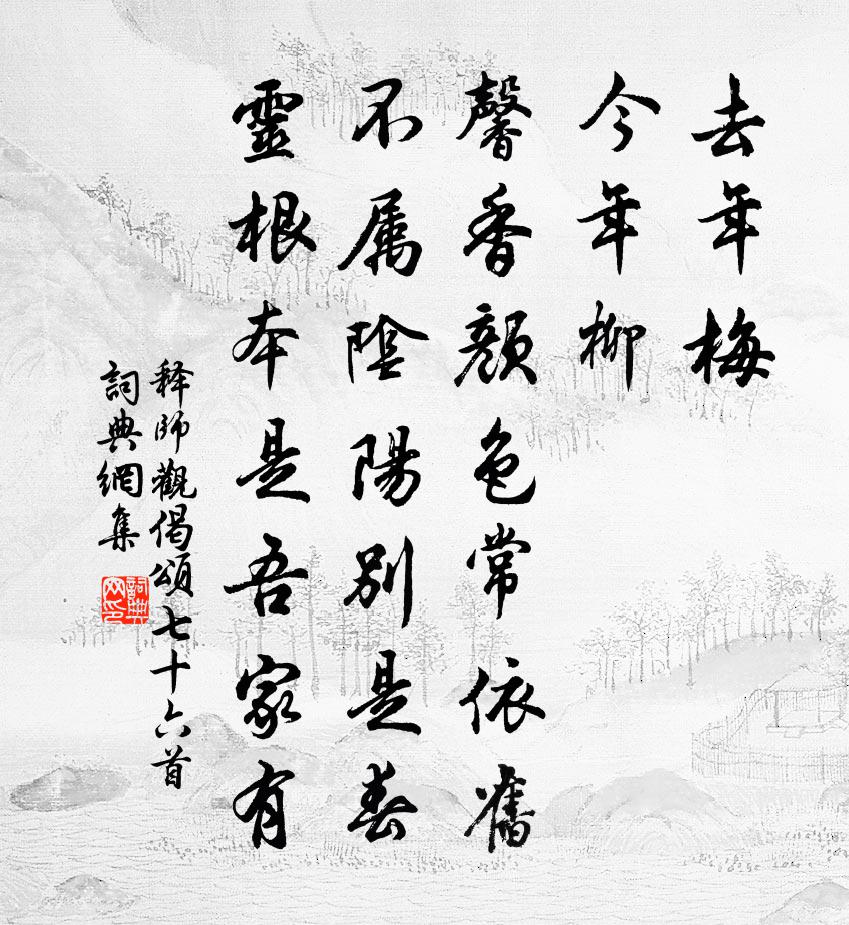 去年梅
今年柳
馨香顏色常依舊
不属陰陽別是春
靈根本是吾家有
释師觀偈頌七十六首
詞典網集
詞典网印